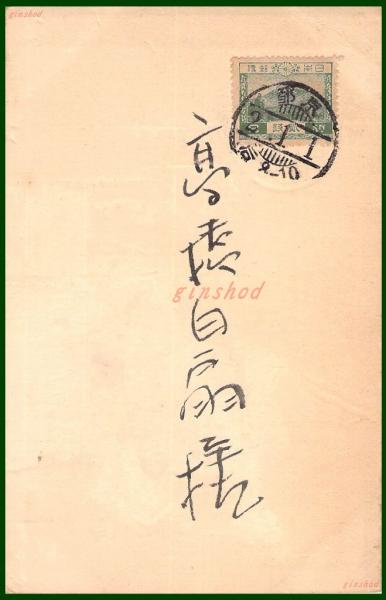 ginshod
大日本帝國郵便
京都
2.1.1
8-10
高橋白扇様
ginshod
ginshod